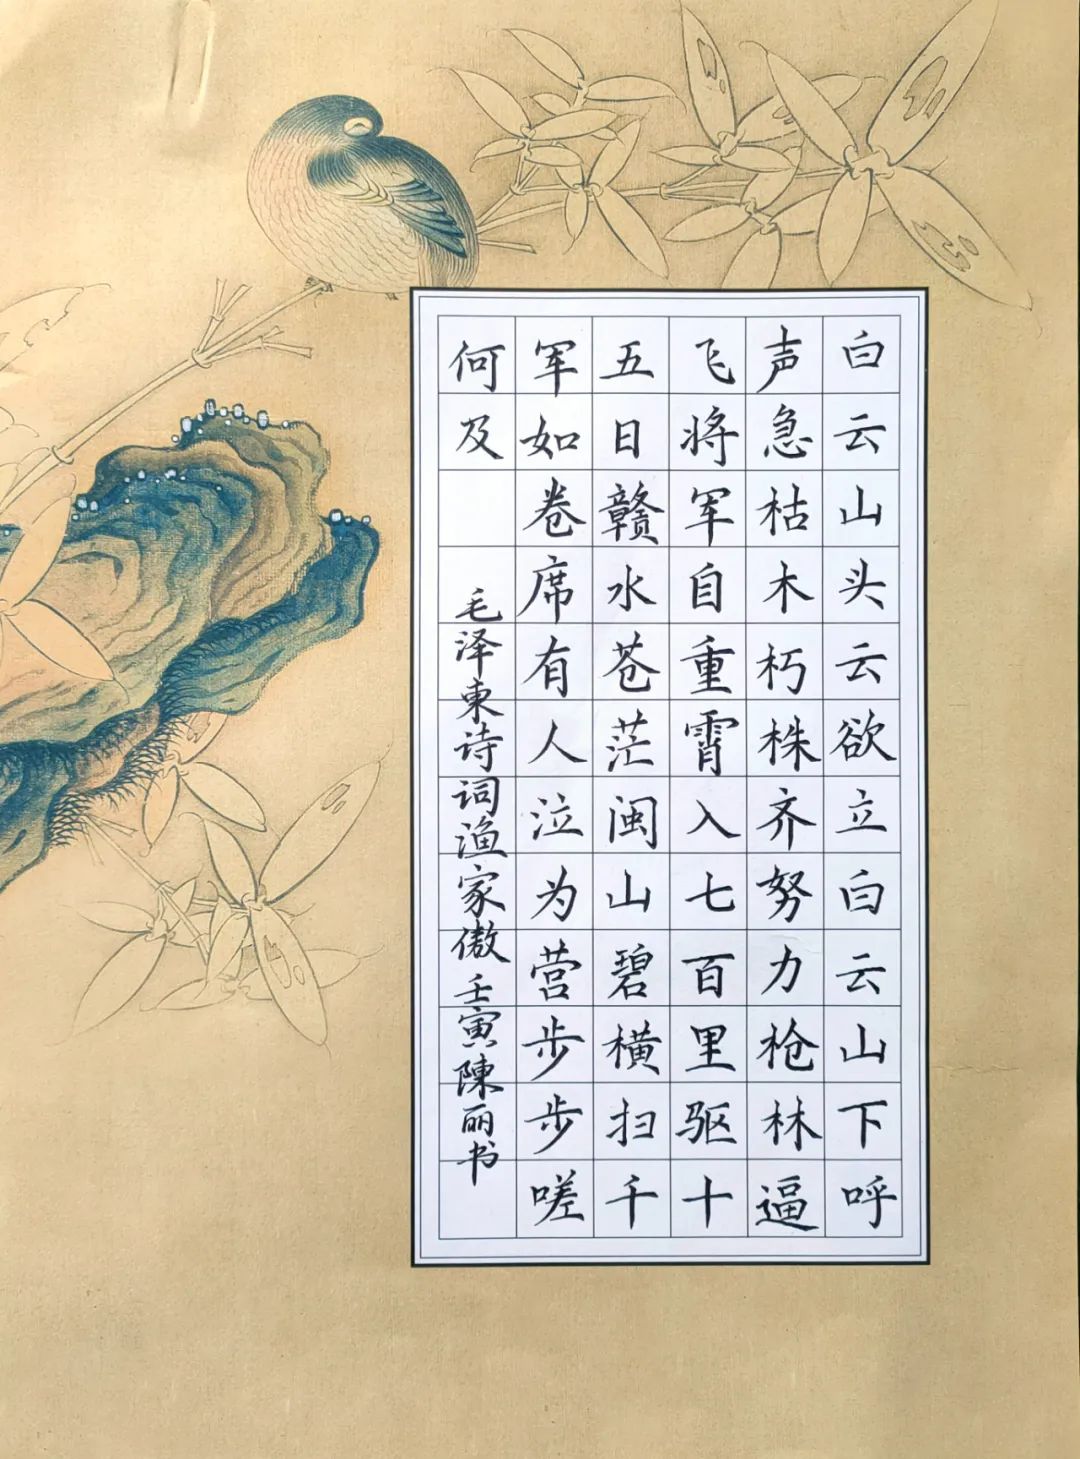 白云山头云欲立白云山下呼
声急枯木朽株齐努力枪林逼
飞将军自重霄入七百里驱十
五日赣水苍茫闽山碧横扫千
军如卷席有人泣为营步步嗟
何及
毛泽東诗词渔家傲壬寅陳丽书